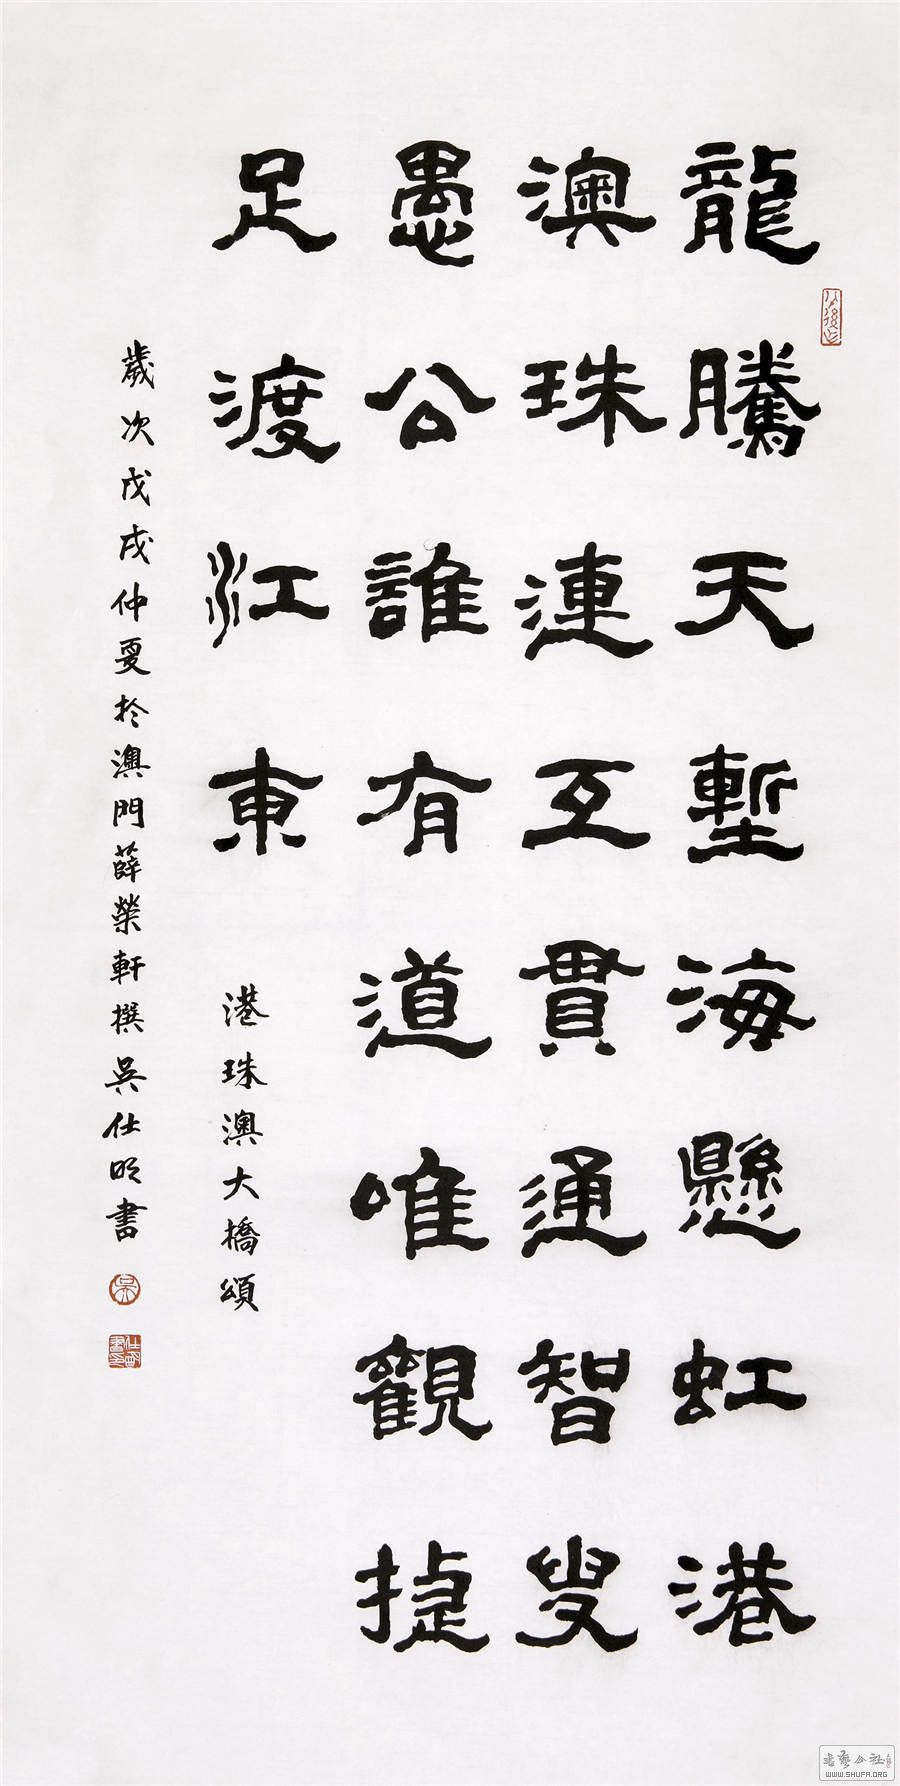 龍騰天塹海懸虹港
澳珠連互貫通智叟
愚公誰有道唯觀捷
足渡江東
港珠澳大橋頌
歲次戊戌仲夏於澳門薛榮軒撰吳仕明書
WWW.SHUFA.ORG